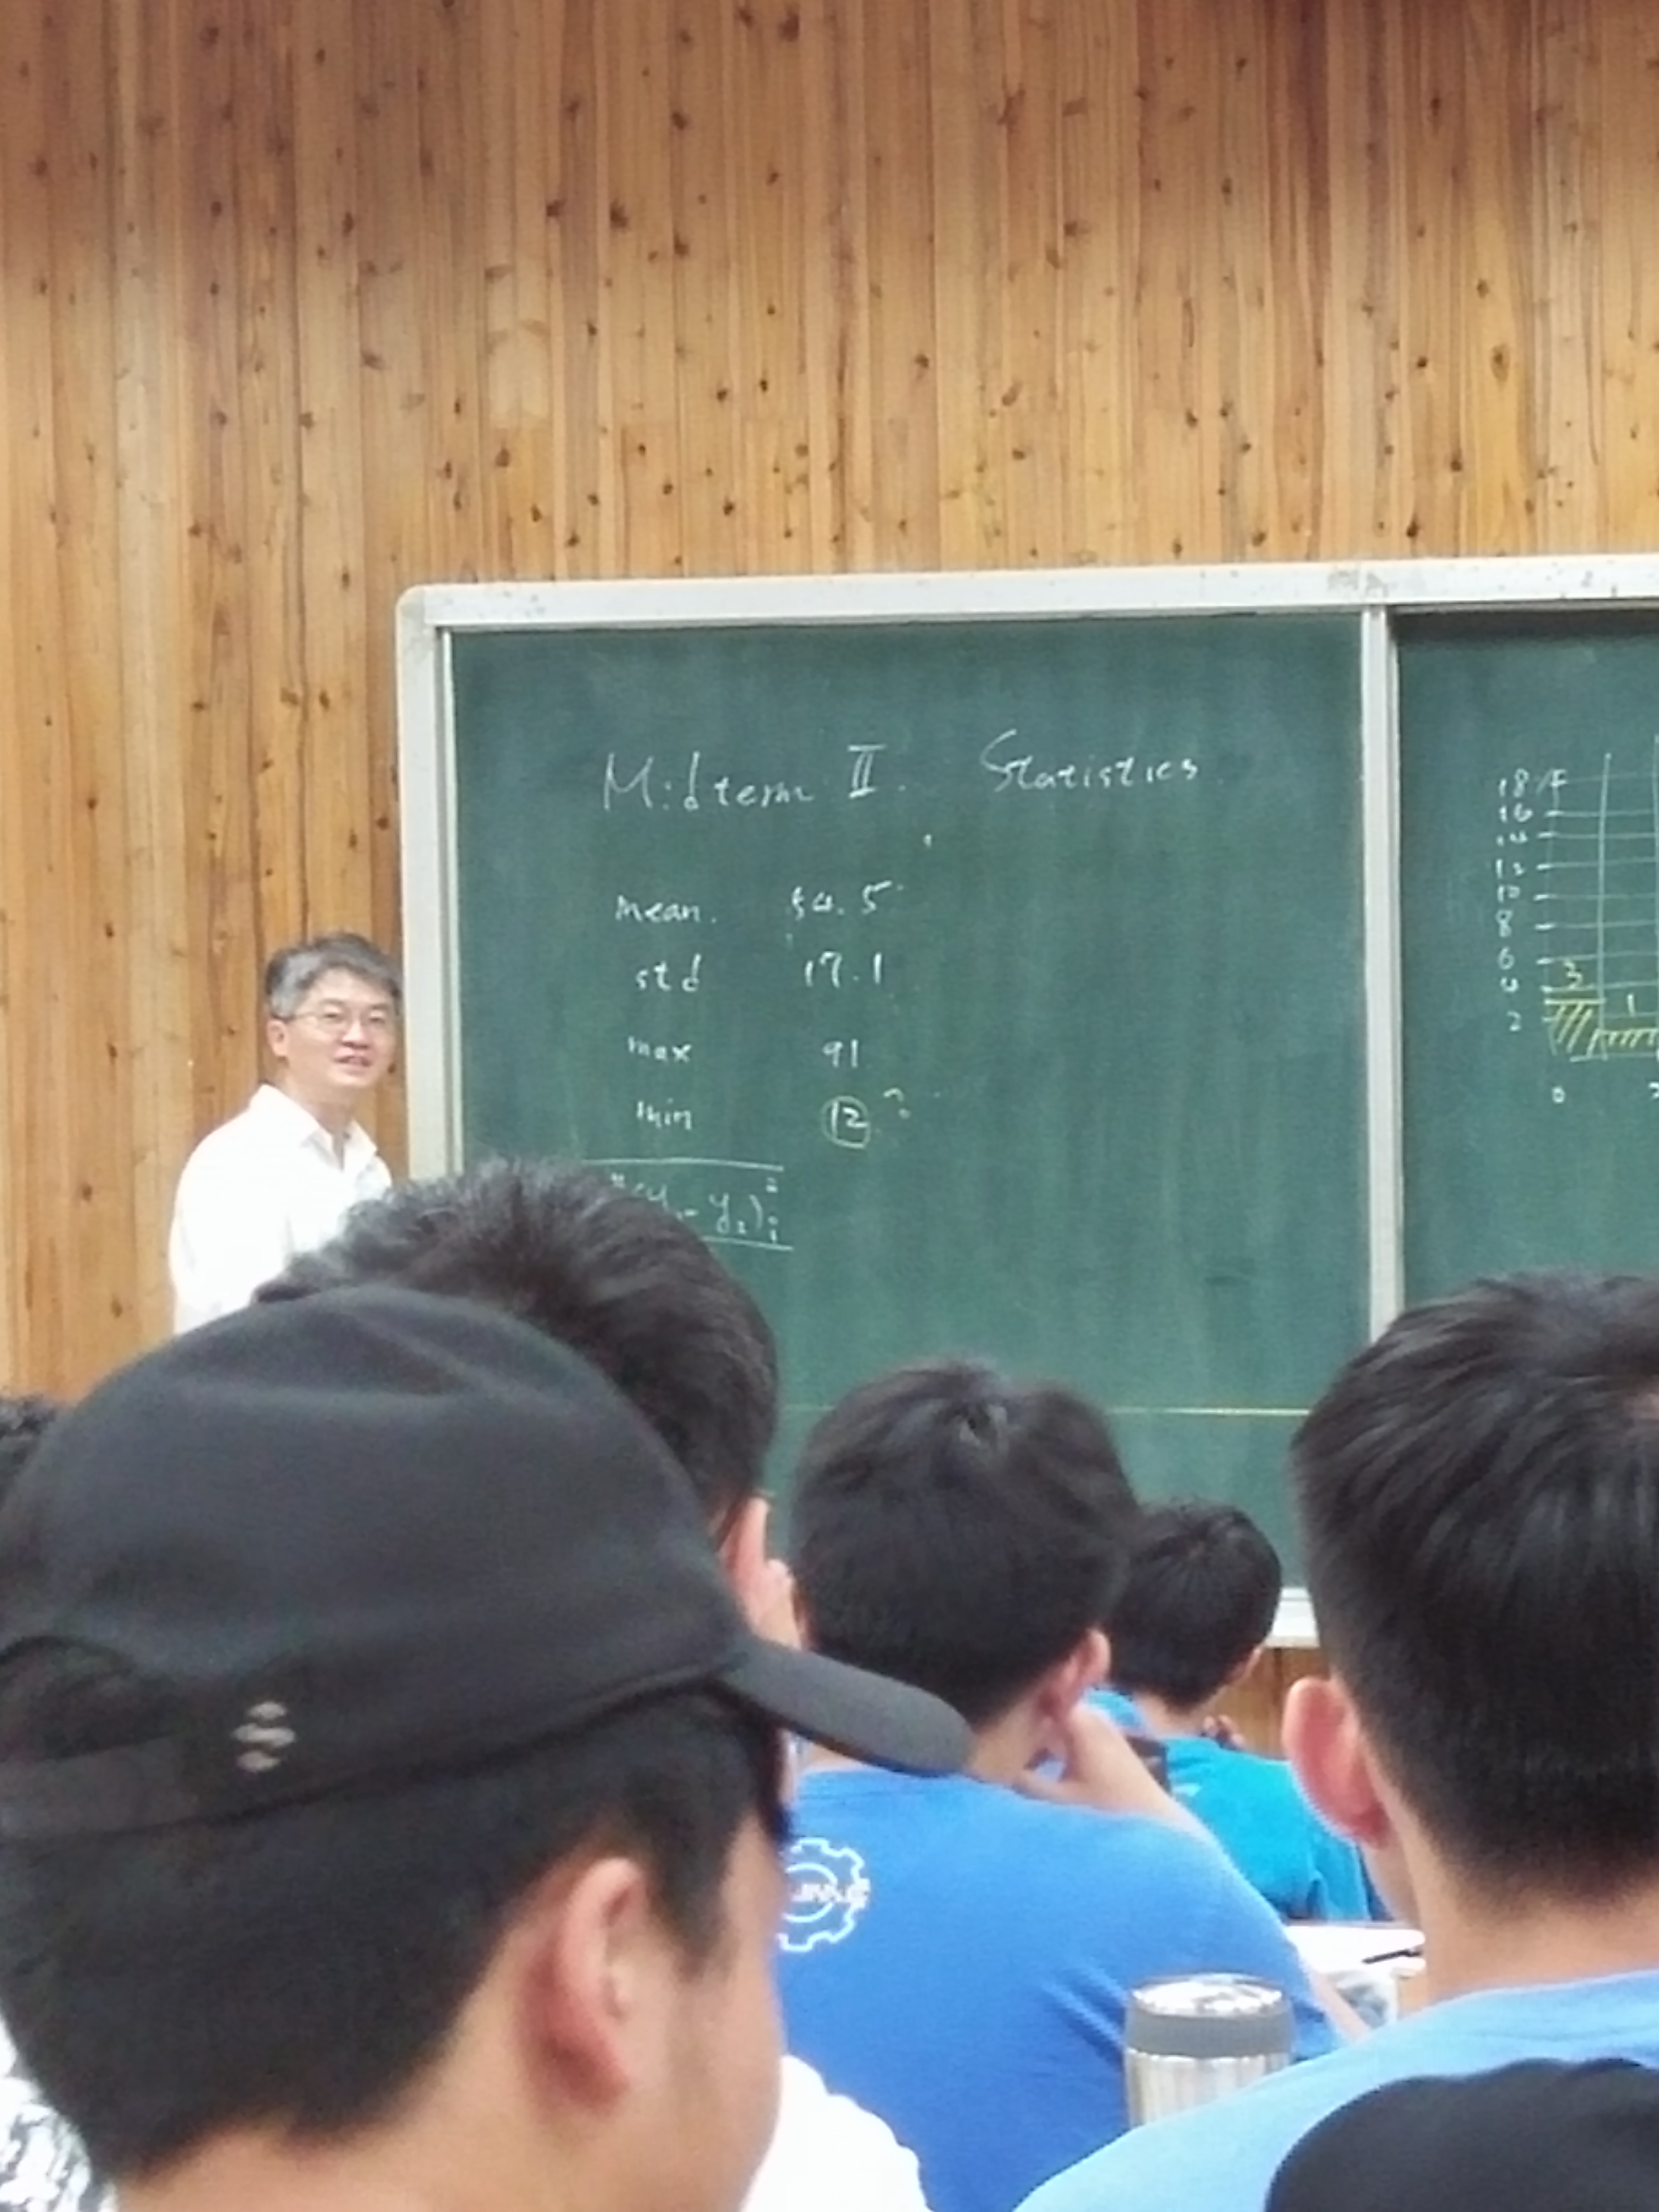 Midterm II. Statistics
mean. 54.5
std 17.1
max 91
min 12 ?
y₂)ᵢ²
18
16
14
12
10
8
6
4
2
3
1
0